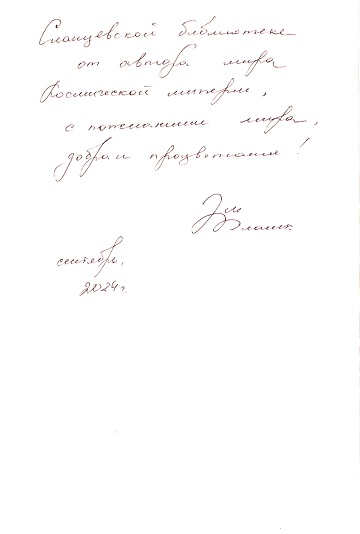 Сланцевской библиотеке
от автора мира
Космической империи,
с пожеланием мира,
добра и процветания!
Эм
сентябрь,
2024 г.